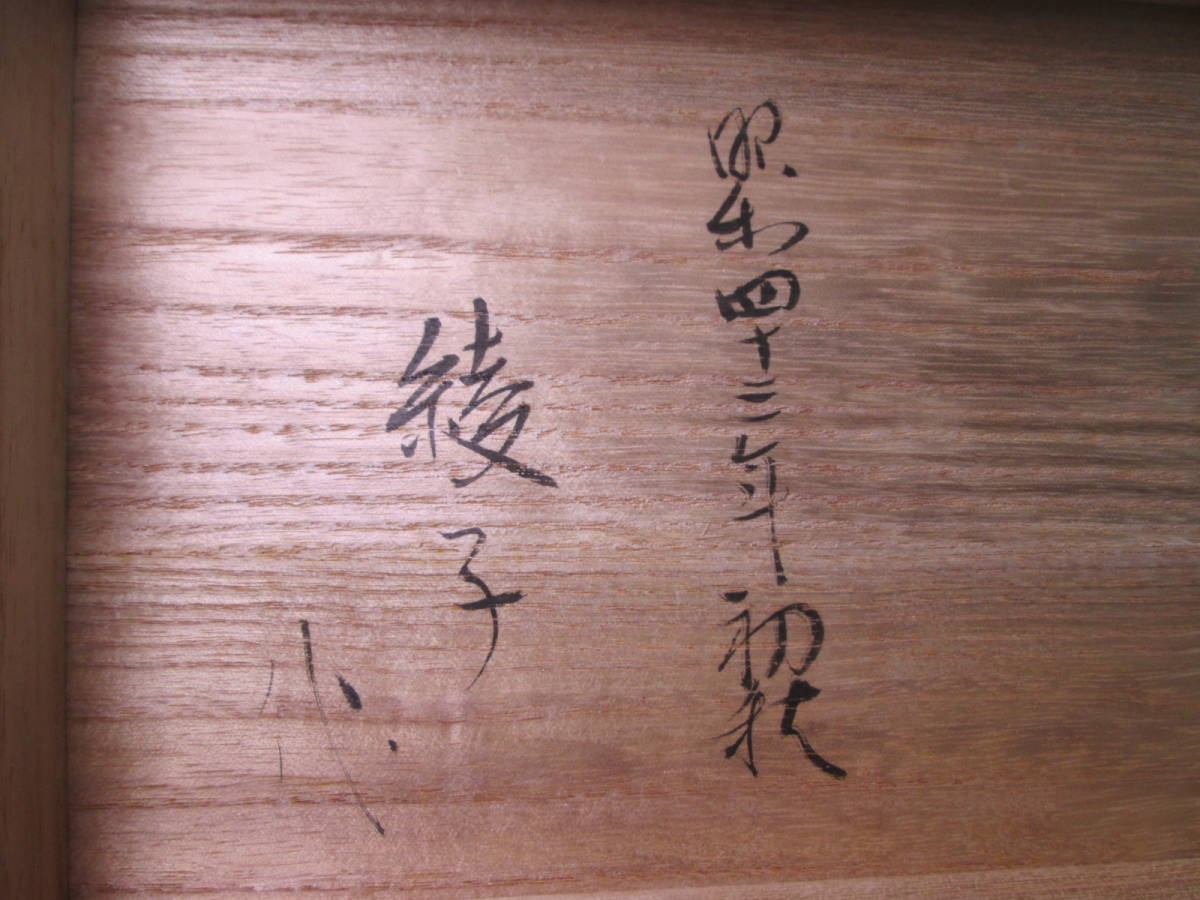 昭和四十三年初秋
綾子